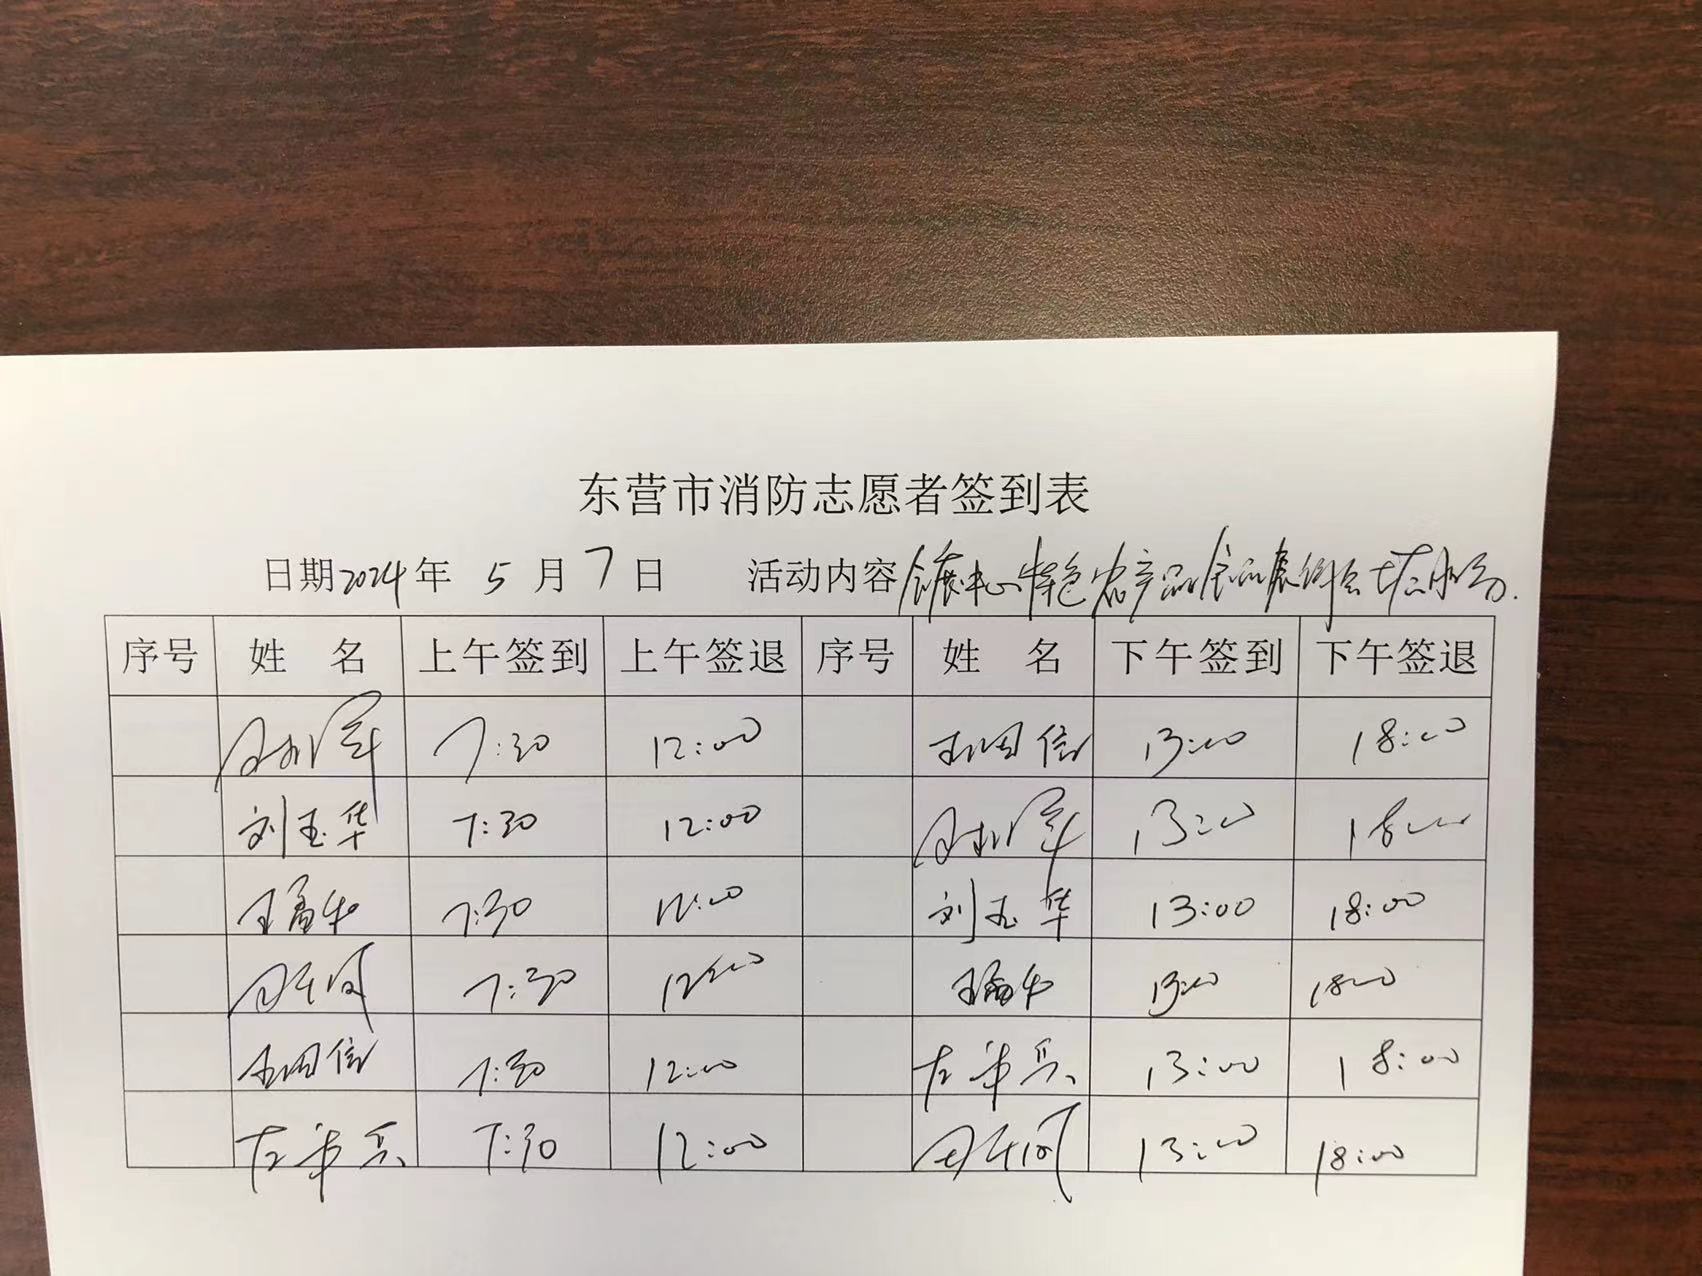 东营市消防志愿者签到表
日期2024年 5 月 7 日 活动内容 会展中心特色农产品食品展销会志愿服务.
序号 姓 名 上午签到 上午签退 序号 姓 名 下午签到 下午签退
7:30 12:00 13:00 18:00
刘玉华 7:30 12:00 13:00 18:00
7:30 12:00 刘玉华 13:00 18:00
7:30 12:00 13:00 18:00
7:30 12:00 左军兵 13:00 18:00
左军兵 7:30 12:00 13:00 18:00